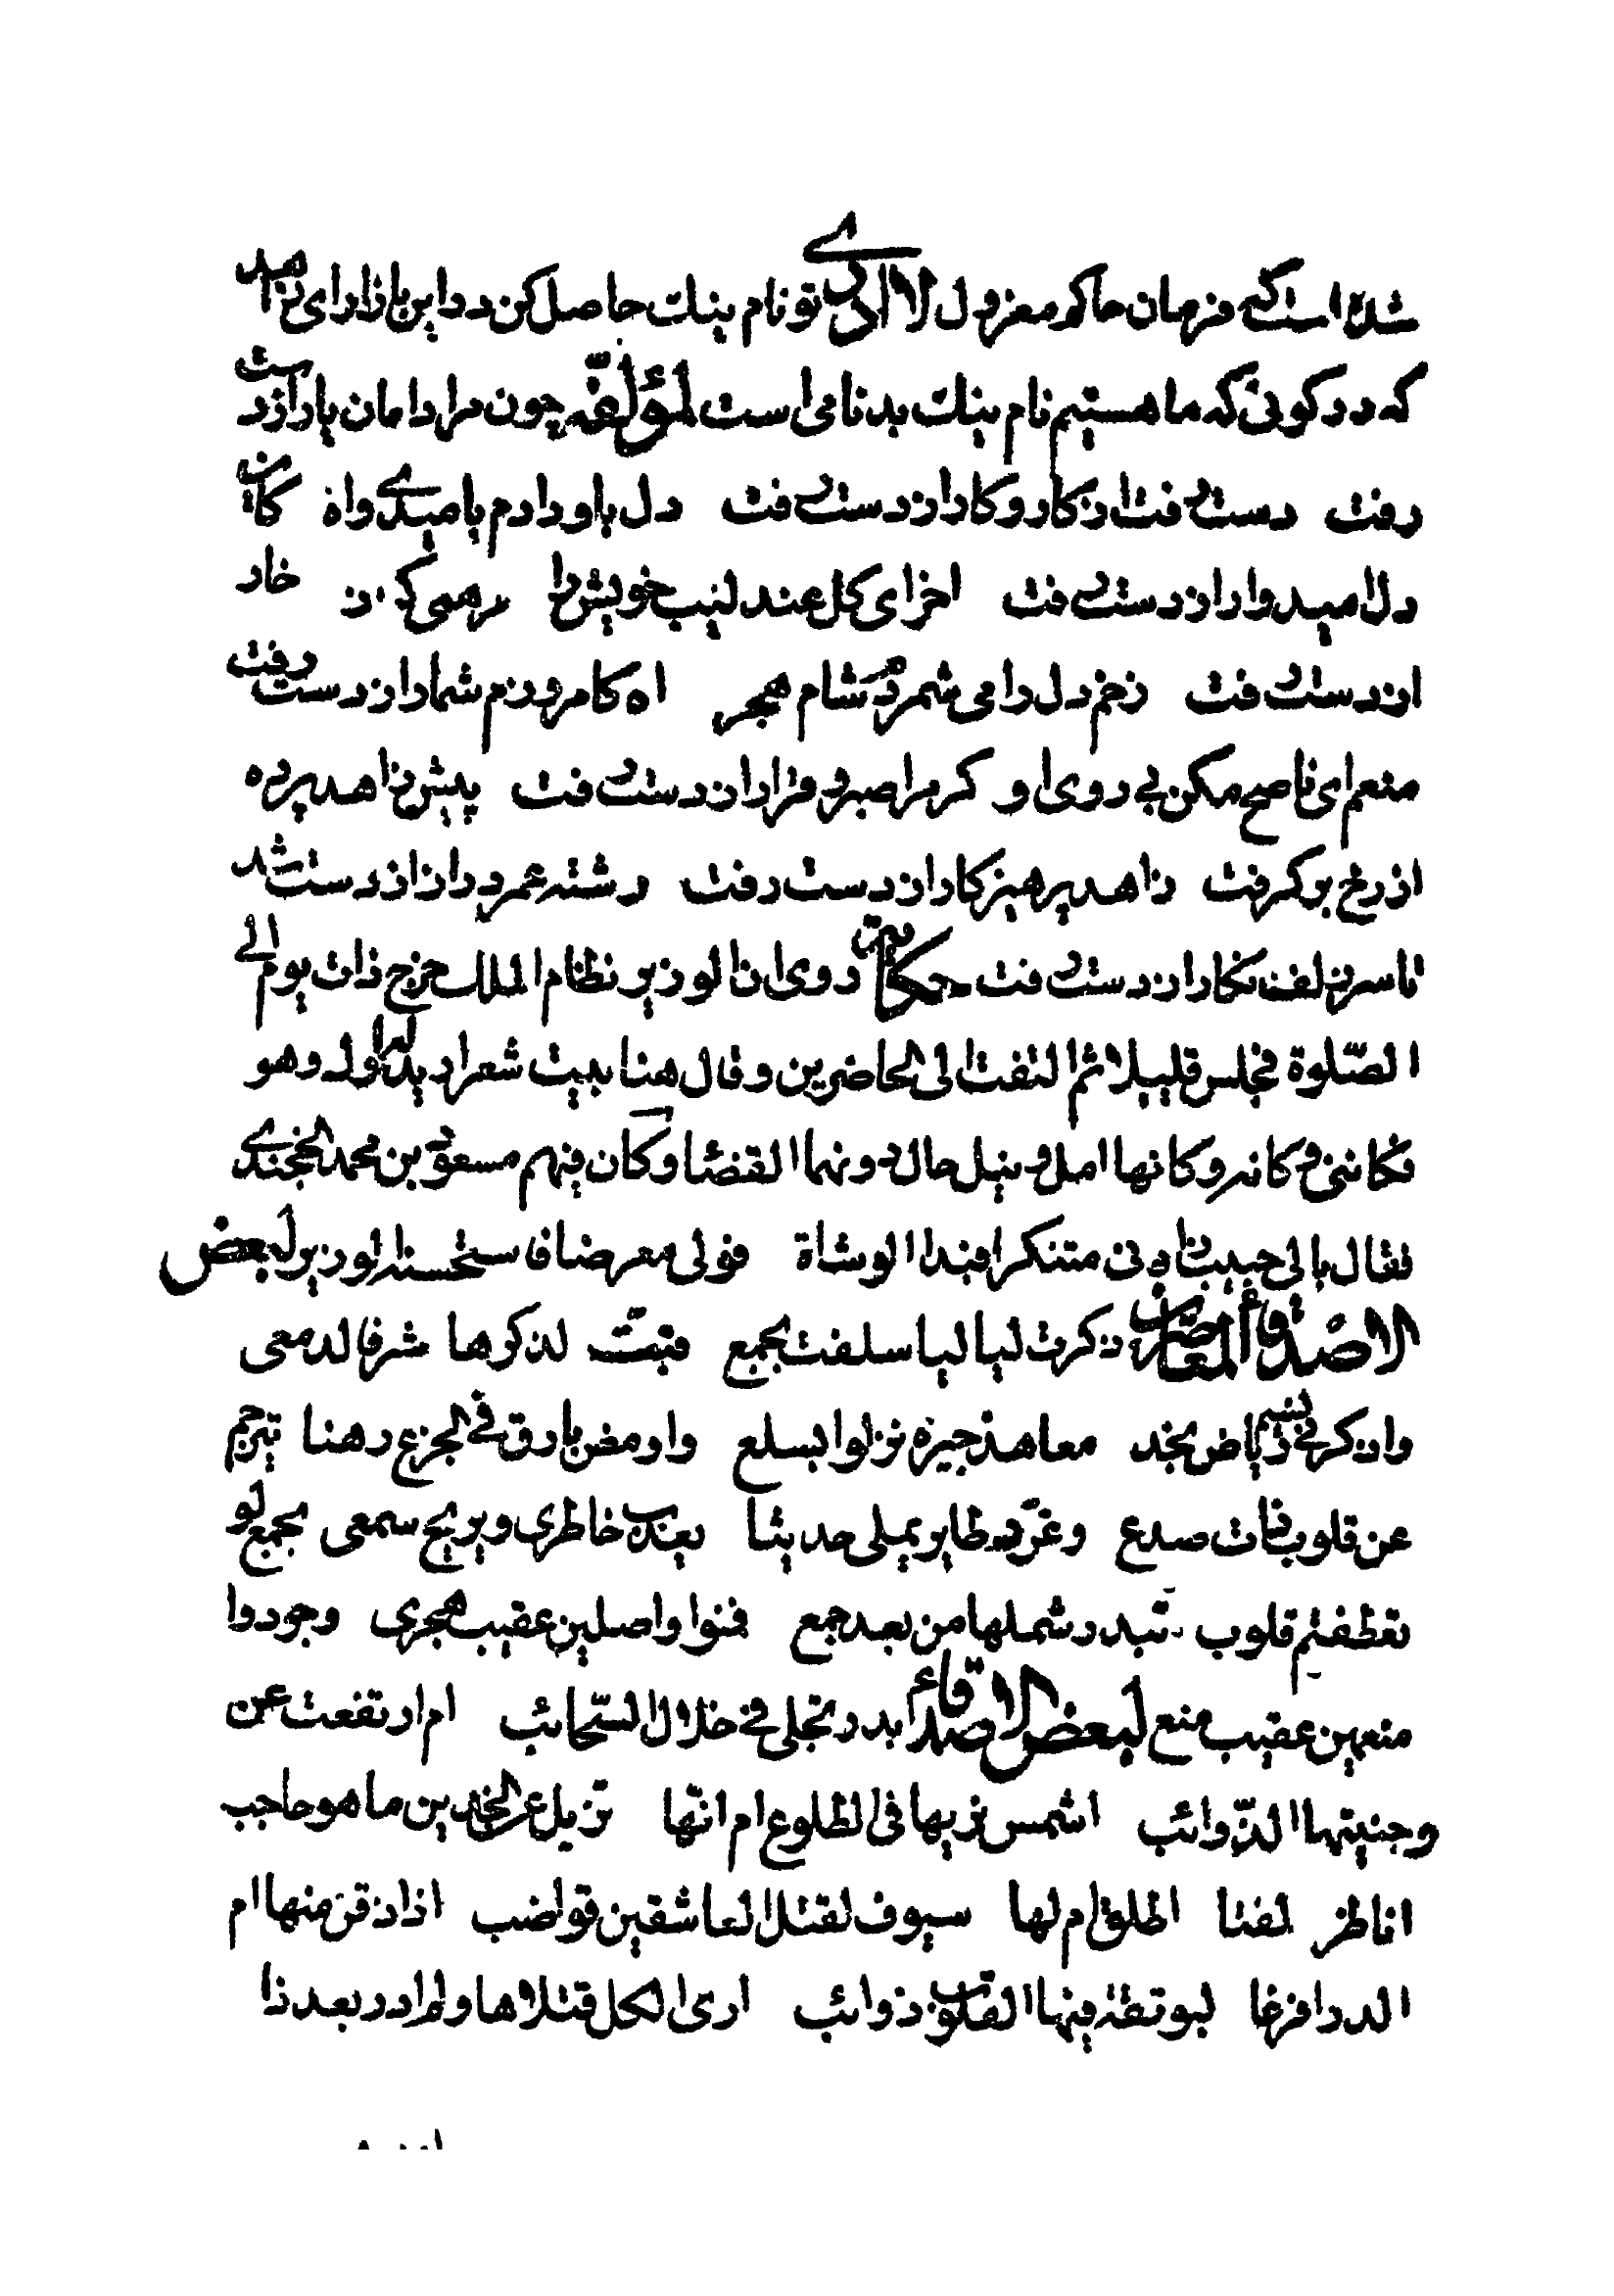 شده است که فرمان حاکم معزول لا ادری تو نام نیک حاصل کن در این بازار ای زاهد
که در کوئی که ما هستیم نام نیک بدنامی است لمؤلفه چون مرا دامان یار از دست
رفت دست رفت از کار و کار از دست رفت دل باو دادم بامیدی واه کان
دل امیدوار از دست رفت اخر ای کل عندلیب خویش را خار
از دست رفت زخم دل را می شمردم شام هجر اه کامروزم شمار از دست رفت
منعم ای ناصح مکن بی روی او کر مرا صبر و قرار از دست رفت پیش زاهد پرده
از رخ بر کرفت زاهد پرهیزکار از دست رفت رشته عمر دراز از دست شد
تا سر زلف نکار از دست رفت حکایت روی ان الوزیر نظام الملک خرج ذات یوم الی
الصّلوة فجلس قلیلا ثم التفت الی الحاضرین و قال هنا بیت شعر ارید له اولا وهو
فکاننی وکانه وکانها امل ونیل حال دونهما القضا وکان فیهم مسعود بن محمد الخجندی
فقال بالی حبیب زارنی متنکرا فبدا الوشاة فولی معرضا فاستحسنه الوزیر لبعض
الاصدقاء المعاصرین ذکرت لیالیا سلفت بجمع فبت لذکرها شرقا لدمعی
واذکرنی نسیم ریاض نجد معاهد جیرة نزلوا بسلع واومض بارق فی الجزع رهنا تترجم
عن قلوب ذات صدع وغرّد طایر یملی حدیثا یعذب خاطری ویریح سمعی بجمع لو
تعطفتم قلوب تبدد شملها من بعد جمع فمنوا واصلین عقیب هجری وجودوا
منعمین عقیب منع لبعض الاصدقاء ابدر تجلی فی خلال السّحائب ام ارتفعت عن
وجنیتها الذّوائب اشمس نریها فی الطلوع ام انّها تزیل عن الخدین ما هو حاجب
اناظر لفتا الطلق ام لها سیوف لقتل العاشقین قواضب اذا ذقن منها ام
الدد افرغا لبوتقة فیها القلوب ذوائب اری الکل قتلاها ولم ادر بعد ذا